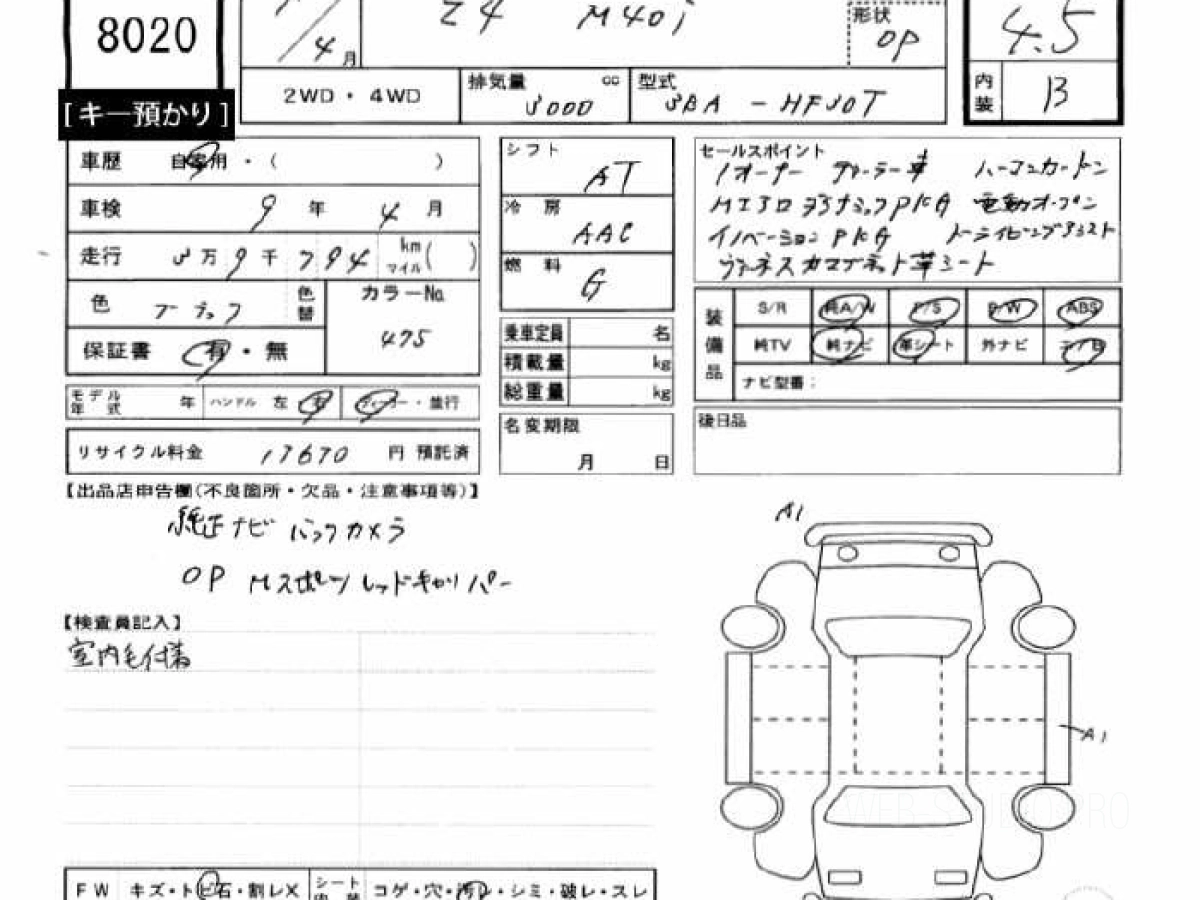 8020
[キー預かり]
4月
Z4 M40i
形状 OP
4.5
2WD・4WD
排気量 cc 3000
型式 3BA-HF30T
内装 B
車歴 自家用・( )
車検 9年 4月
走行 3万9千794 km マイル ( )
色 ブラック 色替
カラーNo. 475
保証書 有・無
モデル年式 年 ハンドル 左 右 ディーラー・並行
リサイクル料金 17670 円 預託済
シフト AT
冷房 AAC
燃料 G
乗車定員 名
積載量 kg
総重量 kg
名変期限 月 日
セールスポイント
1オーナー ディーラー車 ハーマンカードン
電動オープン
イノベーションPKG ドライビングアシスト
ヴァーネスカマグネット革シート
装備品 S/R 純A/W P/S P/W ABS
純TV 純ナビ 革シート 外ナビ
ナビ型番:
後日品
【出品店申告欄(不良箇所・欠品・注意事項等)】
純正ナビ バックカメラ
OP Mスポーツ レッドキャリパー
【検査員記入】
室内毛付着
A1
A1
FW キズ・トビ石・割レX
シート コゲ・穴・汚レ・シミ・破レ・スレ